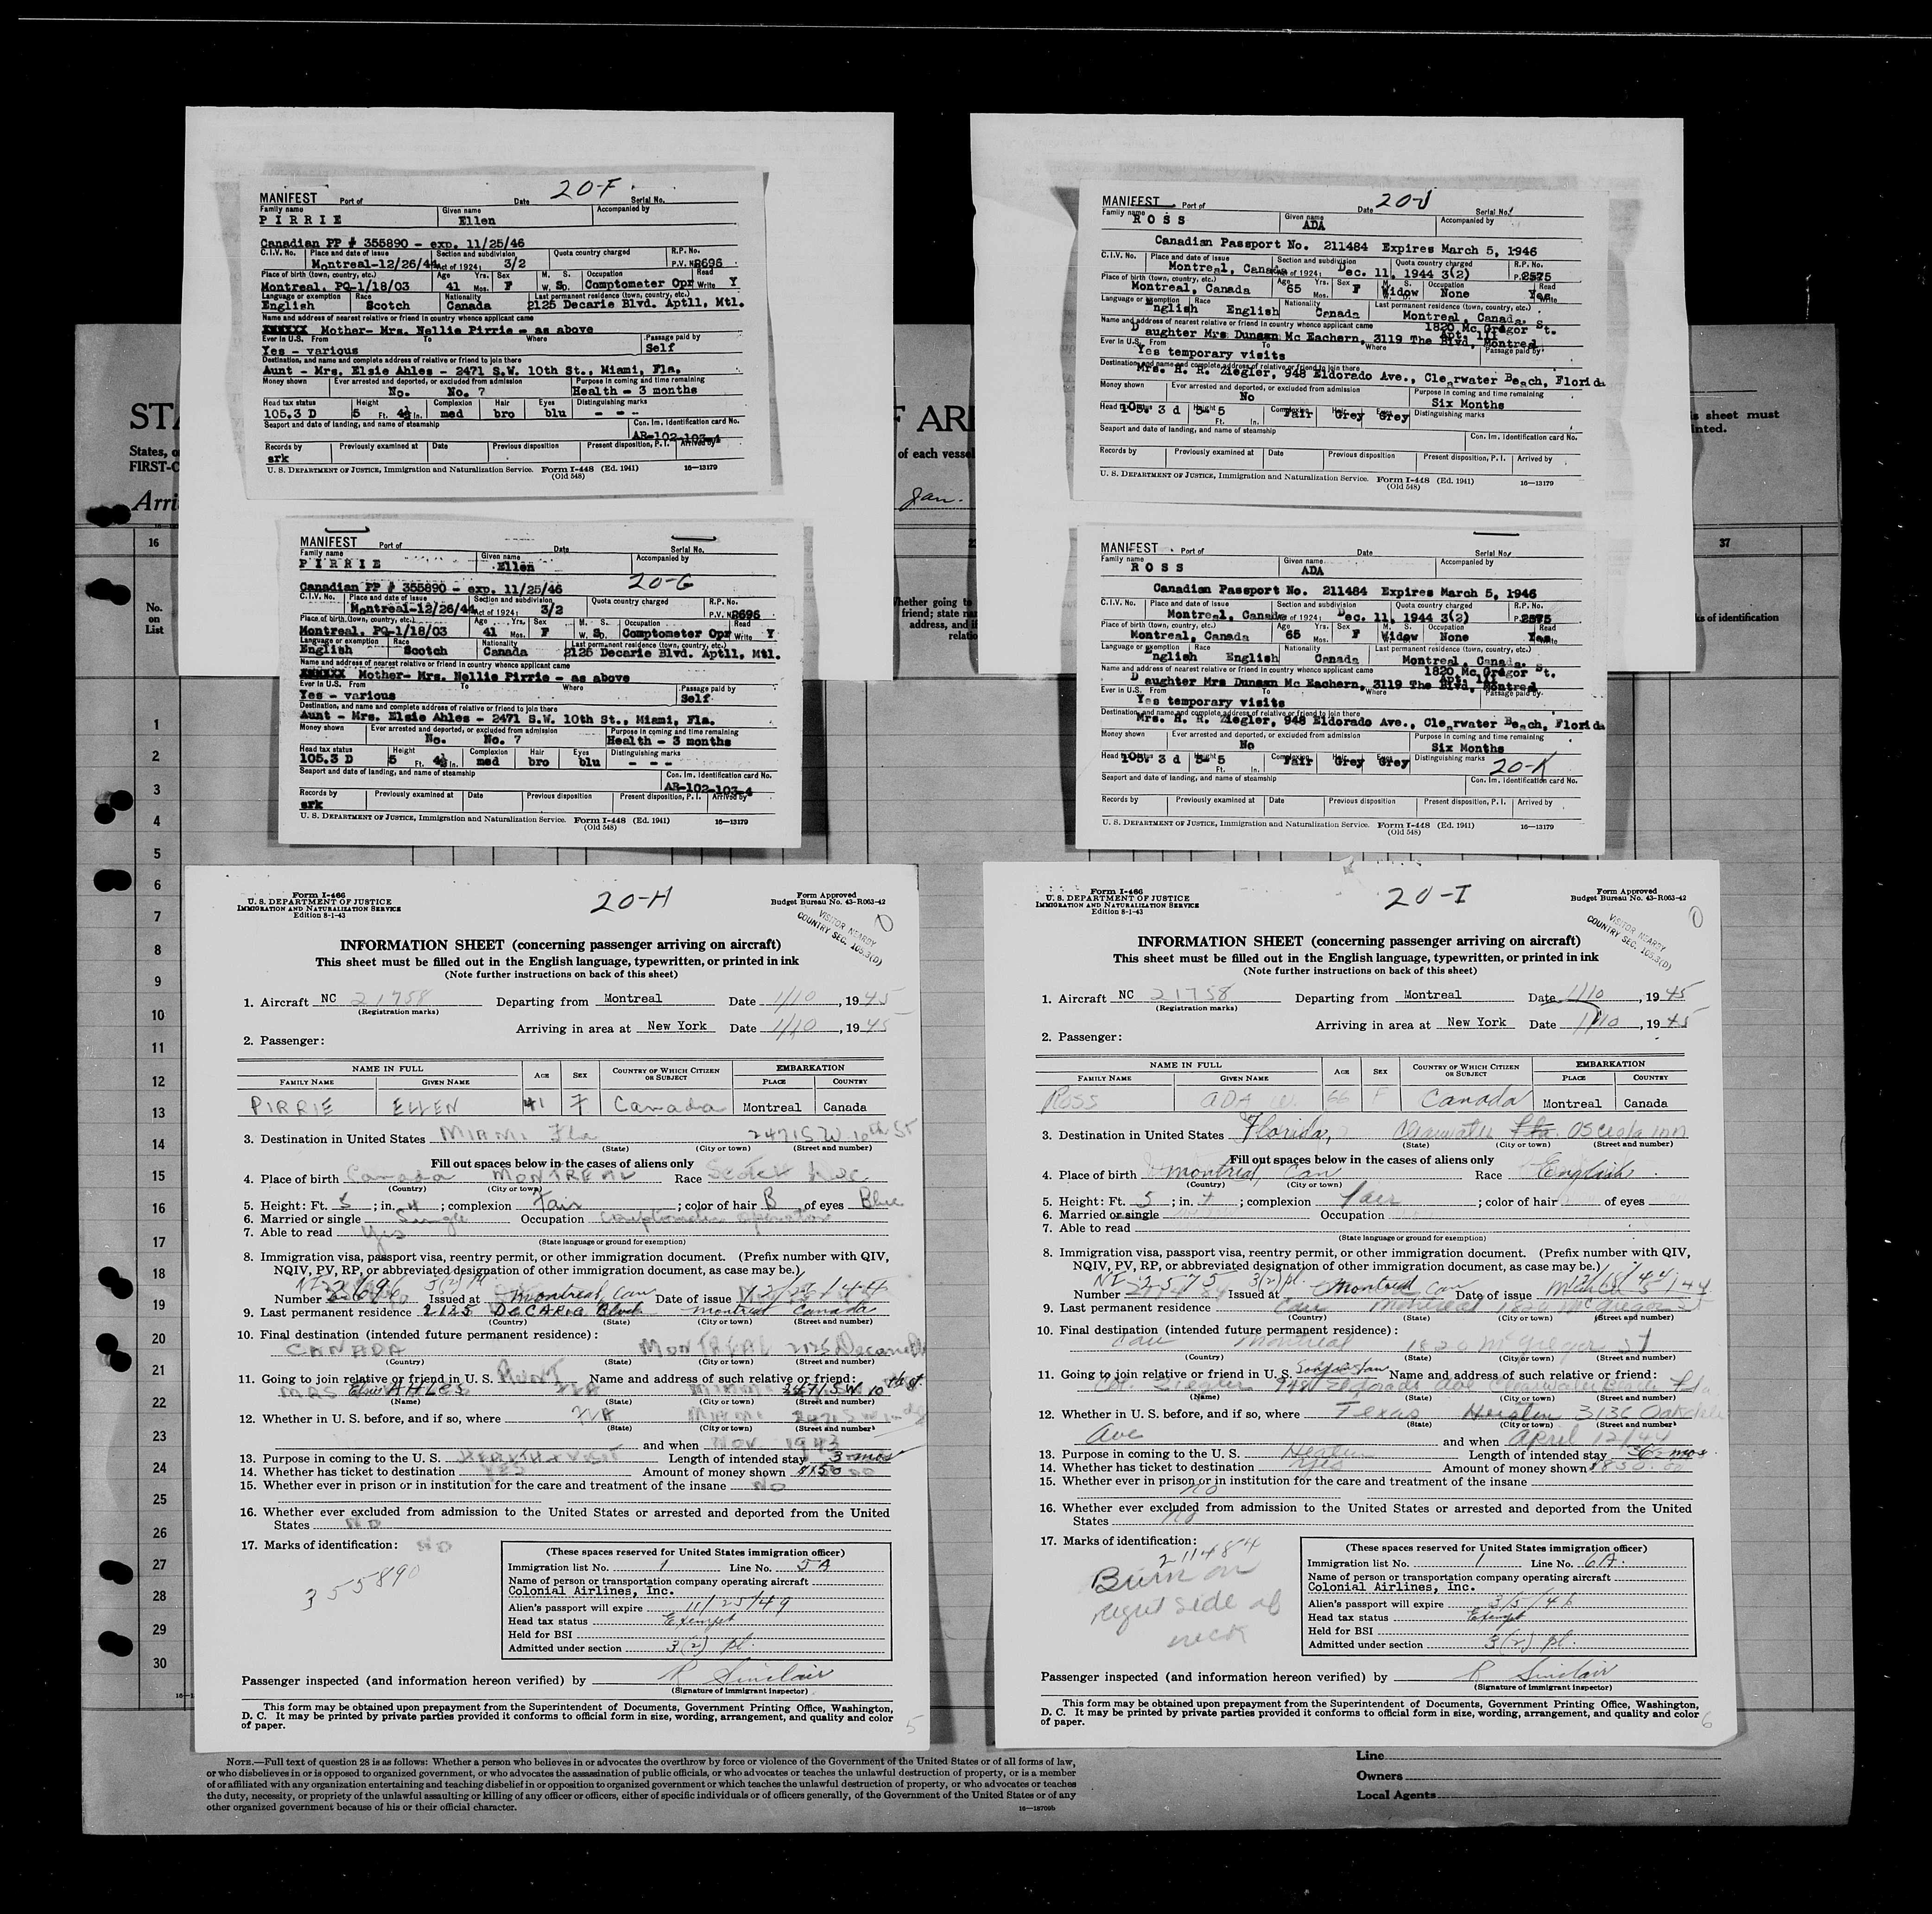 20-F
MANIFEST Port of Date Serial No.
Family name Given name Accompanied by
PIRRIE Ellen
Canadian PP # 355890 - exp. 11/25/46
C.I.V. No. Place and date of issue Section and subdivision Quota country charged R.P. No.
Montreal-12/26/44 Act of 1924: 3/2 P.V. No. 2696
Place of birth (town, country, etc.) Age Yrs. Sex M. S. Occupation Read
Montreal, PQ-1/18/03 41 Mos. F W. SD. Comptometer Opr Write Y
Language or exemption Race Nationality Last permanent residence (town, country, etc.)
English Scotch Canada 2125 Decarie Blvd. Apt11, Mtl.
Name and address of nearest relative or friend in country whence applicant came
XXXXXX Mother- Mrs. Nellie Pirrie - as above
Ever in U.S. From To Where Passage paid by
Yes - various Self
Destination, and name and complete address of relative or friend to join there
Aunt - Mrs. Elsie Ahles - 2471 S.W. 10th St., Miami, Fla.
Money shown Ever arrested and deported, or excluded from admission Purpose in coming and time remaining
No. No. 7 Health - 3 months
Head tax status Height Complexion Hair Eyes Distinguishing marks
105.3 D 5 Ft. 4½ In. med bro blu - - -
Seaport and date of landing, and name of steamship Con. Im. Identification card No.
AR-102-103-4
Records by Previously examined at Date Previous disposition Present disposition, P. I. Arrived by
srk
U. S. DEPARTMENT OF JUSTICE, Immigration and Naturalization Service. Form I-448 (Ed. 1941) 16-13179
(Old 548)
20-J
MANIFEST Port of Date Serial No.
Family name Given name Accompanied by
ROSS ADA
Canadian Passport No. 211484 Expires March 5, 1946
C.I.V. No. Place and date of issue Section and subdivision Quota country charged R.P. No.
Montreal, Canada Act of 1924: Dec. 11, 1944 3(2) P.V. 2575
Place of birth (town, country, etc.) Age Yrs. Sex M. S. Occupation Read
Montreal, Canada 65 Mos. F Widow None Yes Write
Language or exemption Race Nationality Last permanent residence (town, country, etc.)
English English Canada Montreal, Canada.
Name and address of nearest relative or friend in country whence applicant came 1820 Mc Gregor St.
Apt. 111
Daughter Mrs Duncan Mc Eachern, 3119 The Blvd, Montreal
Ever in U.S. From To Where Passage paid by
Yes temporary visits
Destination, and name and complete address of relative or friend to join there
Mrs. H. R. Ziegler, 948 Eldorado Ave., Clearwater Beach, Florida
Money shown Ever arrested and deported, or excluded from admission Purpose in coming and time remaining
No Six Months
Head tax status Height Complexion Hair Eyes Distinguishing marks
105. 3 d 5 5 Ft. In. Fair Grey Grey
Seaport and date of landing, and name of steamship Con. Im. Identification card No.
Records by Previously examined at Date Previous disposition Present disposition, P. I. Arrived by
U. S. DEPARTMENT OF JUSTICE, Immigration and Naturalization Service. Form I-448 (Ed. 1941) 16-13179
(Old 548)
MANIFEST Port of Date Serial No.
Family name Given name Accompanied by
PIRRIE Ellen
20-G
Canadian PP # 355890 - exp. 11/25/46
C.I.V. No. Place and date of issue Section and subdivision Quota country charged R.P. No.
Montreal-12/26/44 Act of 1924: 3/2 P.V. No. 2696
Place of birth (town, country, etc.) Age Yrs. Sex M. S. Occupation Read
Montreal, PQ-1/18/03 41 Mos. F W. SD. Comptometer Opr Write Y
Language or exemption Race Nationality Last permanent residence (town, country, etc.)
English Scotch Canada 2125 Decarie Blvd. Apt11, Mtl.
Name and address of nearest relative or friend in country whence applicant came
XXXXXX Mother- Mrs. Nellie Pirrie - as above
Ever in U.S. From To Where Passage paid by
Yes - various Self
Destination, and name and complete address of relative or friend to join there
Aunt - Mrs. Elsie Ahles - 2471 S.W. 10th St., Miami, Fla.
Money shown Ever arrested and deported, or excluded from admission Purpose in coming and time remaining
No. No. 7 Health - 3 months
Head tax status Height Complexion Hair Eyes Distinguishing marks
105.3 D 5 Ft. 4½ In. med bro blu - - -
Seaport and date of landing, and name of steamship Con. Im. Identification card No.
AR-102-103-4
Records by Previously examined at Date Previous disposition Present disposition, P. I. Arrived by
srk
U. S. DEPARTMENT OF JUSTICE, Immigration and Naturalization Service. Form I-448 (Ed. 1941) 16-13179
(Old 548)
MANIFEST Port of Date Serial No.
Family name Given name Accompanied by
ROSS ADA
Canadian Passport No. 211484 Expires March 5, 1946
C.I.V. No. Place and date of issue Section and subdivision Quota country charged R.P. No.
Montreal, Canada Act of 1924: Dec. 11, 1944 3(2) P.V. 2575
Place of birth (town, country, etc.) Age Yrs. Sex M. S. Occupation Read
Montreal, Canada 65 Mos. F Widow None Yes
Language or exemption Race Nationality Last permanent residence (town, country, etc.)
English English Canada Montreal, Canada.
Name and address of nearest relative or friend in country whence applicant came 1820 Mc Gregor St.
Apt. 111
Daughter Mrs Duncan Mc Eachern, 3119 The Blvd, Montreal
Ever in U.S. From To Where Passage paid by
Yes temporary visits
Destination, and name and complete address of relative or friend to join there
Mrs. H. R. Ziegler, 948 Eldorado Ave., Clearwater Beach, Florida
Money shown Ever arrested and deported, or excluded from admission Purpose in coming and time remaining
No Six Months
Head tax status Height Complexion Hair Eyes Distinguishing marks
105. 3 d 5 5 Ft. In. Fair Grey Grey
20-K
Seaport and date of landing, and name of steamship Con. Im. Identification card No.
Records by Previously examined at Date Previous disposition Present disposition, P. I. Arrived by
U. S. DEPARTMENT OF JUSTICE, Immigration and Naturalization Service. Form I-448 (Ed. 1941) 16-13179
(Old 548)
Form I-466
U. S. DEPARTMENT OF JUSTICE
IMMIGRATION AND NATURALIZATION SERVICE
Edition 8-1-43
20-H
Form Approved
Budget Bureau No. 43-R063-42
VISITOR NEARBY
COUNTRY SEC. 105.3(D)
INFORMATION SHEET (concerning passenger arriving on aircraft)
This sheet must be filled out in the English language, typewritten, or printed in ink
(Note further instructions on back of this sheet)
1. Aircraft NC 21758 Departing from Montreal Date 1/10, 1945
(Registration marks)
Arriving in area at New York Date 1/10, 1945
2. Passenger:
NAME IN FULL AGE SEX COUNTRY OF WHICH CITIZEN OR SUBJECT EMBARKATION
FAMILY NAME GIVEN NAME PLACE COUNTRY
PIRRIE ELLEN 41 F Canada Montreal Canada
3. Destination in United States MIAMI Fla 2471 S W 10th St
(State) (City or town) (Street and number)
Fill out spaces below in the cases of aliens only
4. Place of birth Canada MONTREAL Race Scotch
(Country) (City or town)
5. Height: Ft. 5; in. 4; complexion Fair; color of hair B of eyes Blue
6. Married or single Single Occupation Comptometer Operator
7. Able to read Yes
(State language or ground for exemption)
8. Immigration visa, passport visa, reentry permit, or other immigration document. (Prefix number with QIV,
NQIV, PV, RP, or abbreviated designation of other immigration document, as case may be.)
Number NI 2696 3(2) pl Issued at Montreal, Can Date of issue 12/26/44
9. Last permanent residence 2125 DECARIE Blvd montreal Canada
(Country) (State) (City or town) (Street and number)
10. Final destination (intended future permanent residence):
CANADA MONTREAL 2125 Decarie
(Country) (State) (City or town) (Street and number)
11. Going to join relative or friend in U. S. AUNT Name and address of such relative or friend:
MRS Elsie AHLES FLA MIAMI 2471 S W 10th St
(Name) (State) (City or town) (Street and number)
12. Whether in U. S. before, and if so, where FLA MIAMI 2471 S W
(State) (City or town) (Street and number)
and when NOV. 1943
13. Purpose in coming to the U. S. HEALTH + VISIT Length of intended stay 3 mos
14. Whether has ticket to destination YES Amount of money shown $150
15. Whether ever in prison or in institution for the care and treatment of the insane NO
16. Whether ever excluded from admission to the United States or arrested and deported from the United
States NO
17. Marks of identification: NO
355890
(These spaces reserved for United States immigration officer)
Immigration list No. 1 Line No. 5A
Name of person or transportation company operating aircraft
Colonial Airlines, Inc.
Alien's passport will expire 11/25/49
Head tax status Exempt
Held for BSI
Admitted under section 3(2) pl.
Passenger inspected (and information hereon verified) by R Sinclair
(Signature of immigrant inspector)
This form may be obtained upon prepayment from the Superintendent of Documents, Government Printing Office, Washington,
D. C. It may be printed by private parties provided it conforms to official form in size, wording, arrangement, and quality and color
of paper.
5
Form I-466
U. S. DEPARTMENT OF JUSTICE
IMMIGRATION AND NATURALIZATION SERVICE
Edition 8-1-43
20-I
Form Approved
Budget Bureau No. 43-R063-42
VISITOR NEARBY
COUNTRY SEC. 105.3(D)
INFORMATION SHEET (concerning passenger arriving on aircraft)
This sheet must be filled out in the English language, typewritten, or printed in ink
(Note further instructions on back of this sheet)
1. Aircraft NC 21758 Departing from Montreal Date 1/10, 1945
(Registration marks)
Arriving in area at New York Date 1/10, 1945
2. Passenger:
NAME IN FULL AGE SEX COUNTRY OF WHICH CITIZEN OR SUBJECT EMBARKATION
FAMILY NAME GIVEN NAME PLACE COUNTRY
ROSS ADA W. 66 F Canada Montreal Canada
3. Destination in United States Florida, Clearwater Fla. Osceola Inn
(State) (City or town) (Street and number)
Fill out spaces below in the cases of aliens only
4. Place of birth montreal, Can Race English
(Country) (City or town)
5. Height: Ft. 5; in.; complexion fair; color of hair of eyes
6. Married or single Occupation
7. Able to read
(State language or ground for exemption)
8. Immigration visa, passport visa, reentry permit, or other immigration document. (Prefix number with QIV,
NQIV, PV, RP, or abbreviated designation of other immigration document, as case may be.)
Number NI 2575 3(2) pl. Issued at Montreal Can Date of issue
9. Last permanent residence Can Montreal 1820 McGregor St
(Country) (State) (City or town) (Street and number)
10. Final destination (intended future permanent residence):
Can Montreal 1820 McGregor ST
(Country) (State) (City or town) (Street and number)
11. Going to join relative or friend in U. S. Name and address of such relative or friend:
Col. Ziegler 948 Eldorado Ave Clearwater Beach Fla
(Name) (State) (City or town) (Street and number)
12. Whether in U. S. before, and if so, where Texas Houston 3136 Oakdale
(State) (City or town) (Street and number)
Ave and when April 12/44
13. Purpose in coming to the U. S. Health Length of intended stay 6 mos
14. Whether has ticket to destination yes Amount of money shown
15. Whether ever in prison or in institution for the care and treatment of the insane
no
16. Whether ever excluded from admission to the United States or arrested and deported from the United
States no
17. Marks of identification:
211484
Burn on
right side of
neck
(These spaces reserved for United States immigration officer)
Immigration list No. 1 Line No. 6A.
Name of person or transportation company operating aircraft
Colonial Airlines, Inc.
Alien's passport will expire 3/5/46
Head tax status Exempt
Held for BSI
Admitted under section 3(2) pl.
Passenger inspected (and information hereon verified) by R Sinclair
(Signature of immigrant inspector)
This form may be obtained upon prepayment from the Superintendent of Documents, Government Printing Office, Washington,
D. C. It may be printed by private parties provided it conforms to official form in size, wording, arrangement, and quality and color
of paper.
6
FIRST-C
of each vessel
Jan.
sheet must
16
37
No.
on
List
whether going to
friend; state
address, and if
of identification
1
2
3
4
5
6
7
8
9
10
11
12
13
14
15
16
17
18
19
20
21
22
23
24
25
26
27
28
29
30
NOTE.—Full text of question 28 is as follows: Whether a person who believes in or advocates the overthrow by force or violence of the Government of the United States or of all forms of law,
or who disbelieves in or is opposed to organized government, or who advocates the assassination of public officials, or who advocates or teaches the unlawful destruction of property, or is a member
of or affiliated with any organization entertaining and teaching disbelief in or opposition to organized government or which teaches the unlawful destruction of property, or who advocates or teaches
the duty, necessity, or propriety of the unlawful assaulting or killing of any officer or officers, either of specific individuals or of officers generally, of the Government of the United States or of any
other organized government because of his or their official character.
16-18709b
Line
Owners
Local Agents